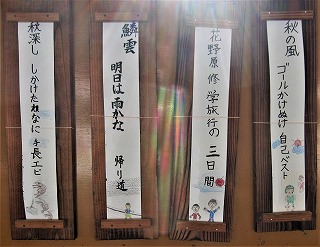 秋の風 ゴールかけぬけ 自己ベスト
花野原 修学旅行の 三日間
鱗雲 明日は雨かな 帰り道
秋深し しかけたわなに 手長エビ